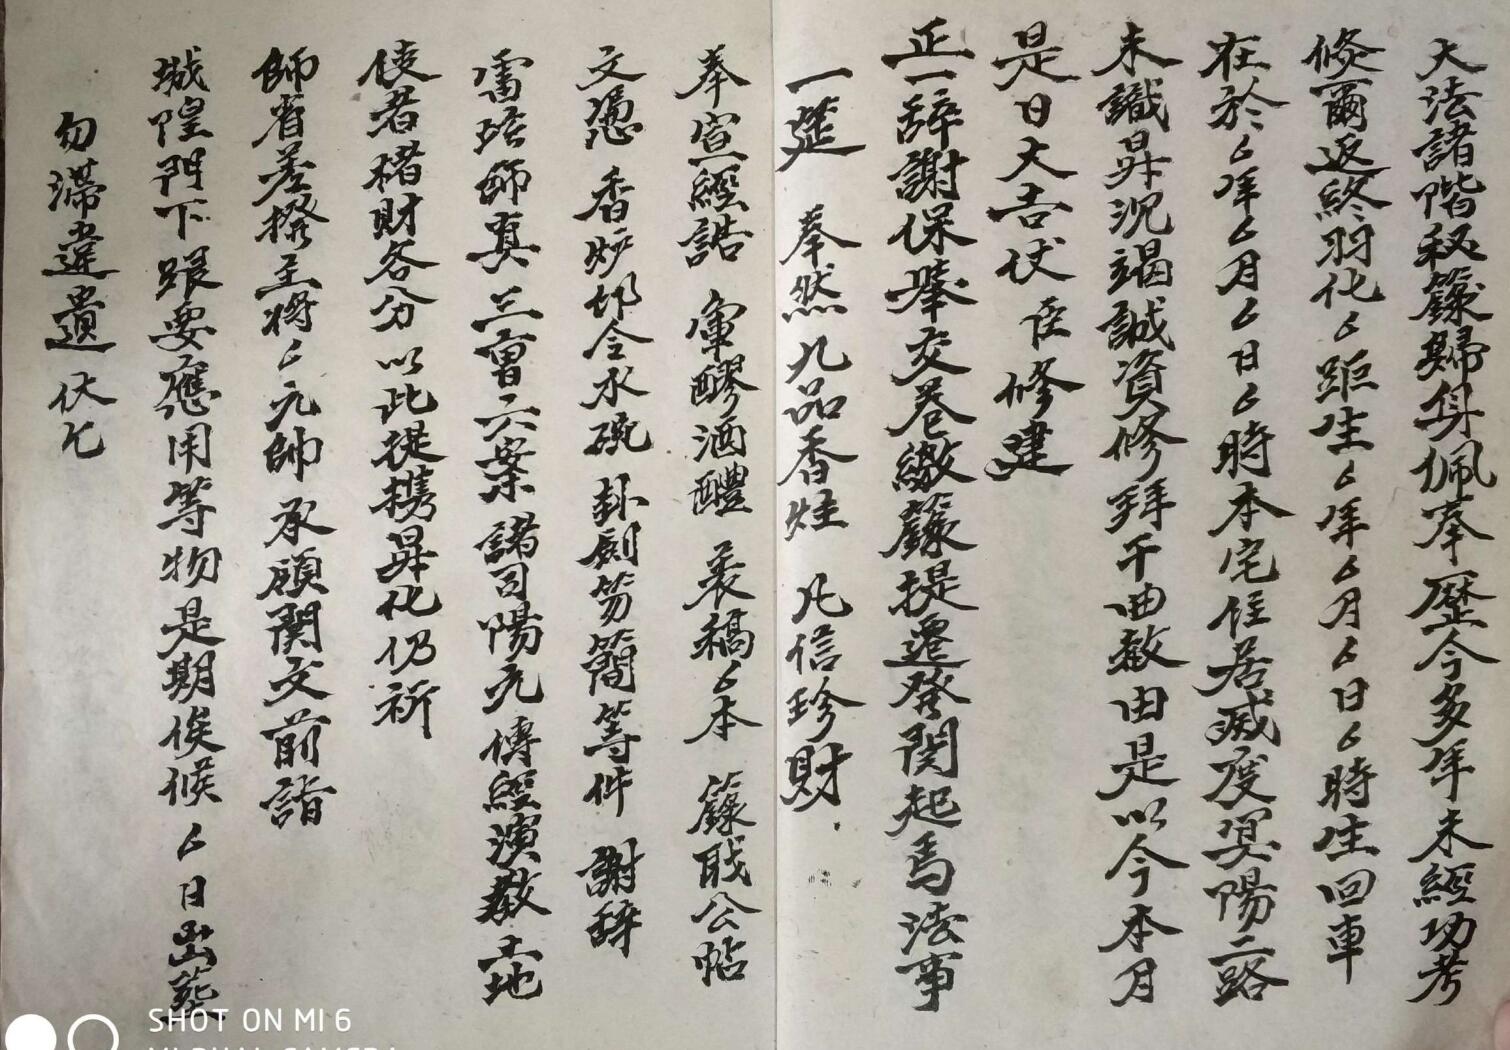 大法諸階秘籙歸身佩奉歷今多年未經功考
倐爾返終羽化厶距生厶年厶月厶日厶時生回車
在於厶年厶月厶日厶時本宅住居滅度冥陽二路
未識昇沉竭誠資修拜干曲赦由是以今本月
是日大吉伏臣修建
正一辭謝保舉交卷繳籙提遷發関起馬法事
一筵 奉然九品香炷 凡信珍財
奉宣經誥 窜醪酒醴 表稿厶本 籙職公帖
文憑 香炉印令水碗 卦劍笏簡等件 謝辞
雷坛師真 三曹六案 諸司陽元傳經演教土地
使者楮財各分 以此提携昇化仍祈
師省差撥主将厶元帥 承領関文前詣
城隍門下跟要應用等物是期俟候厶日出葬
勿滯違遺 伏乞
SHOT ON MI 6